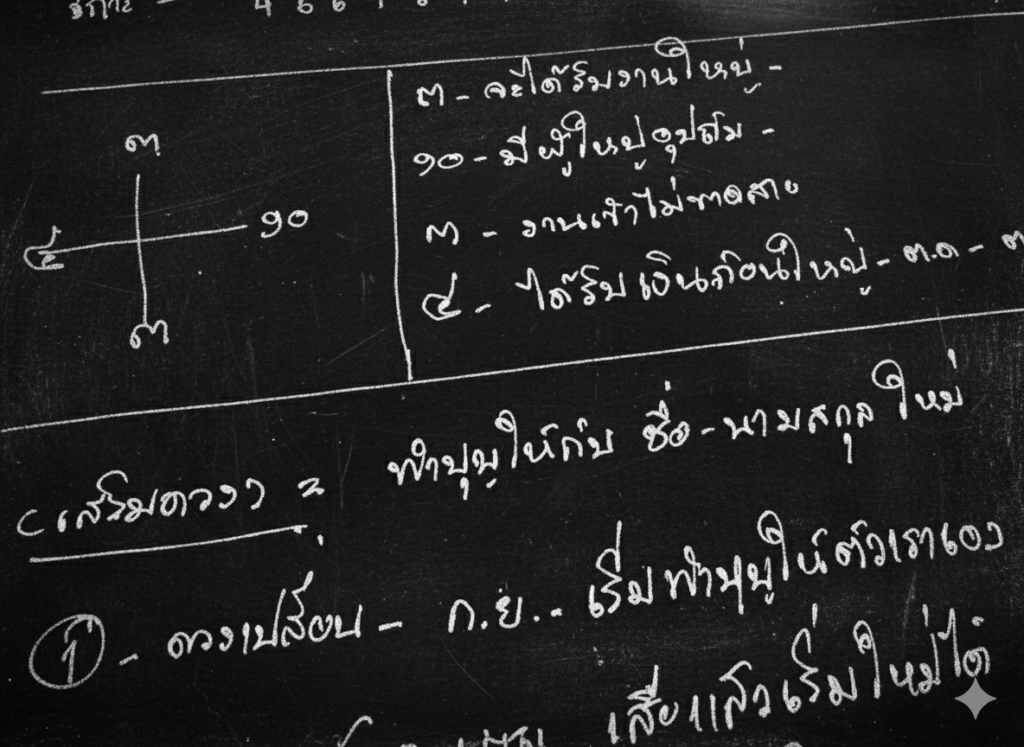 ๓
๑๐
๕
๓
๓ - จะได้รับงานใหญ่ -
๑๐ - มีผู้ใหญ่อุปถัม -
๓ - งานเข้าไม่ขาดสาย
๕ - ได้รับเงินก้อนใหญ่ - ต.ค - ๓
(เสริมดวง) = ทำบุญให้กับ ชื่อ - นามสกุล ใหม่
① - ดวงเปลี่ยน - ก.ย. - เริ่มทำบุญให้ตัวเราเอง
เสียแล้วเริ่มใหม่ได้